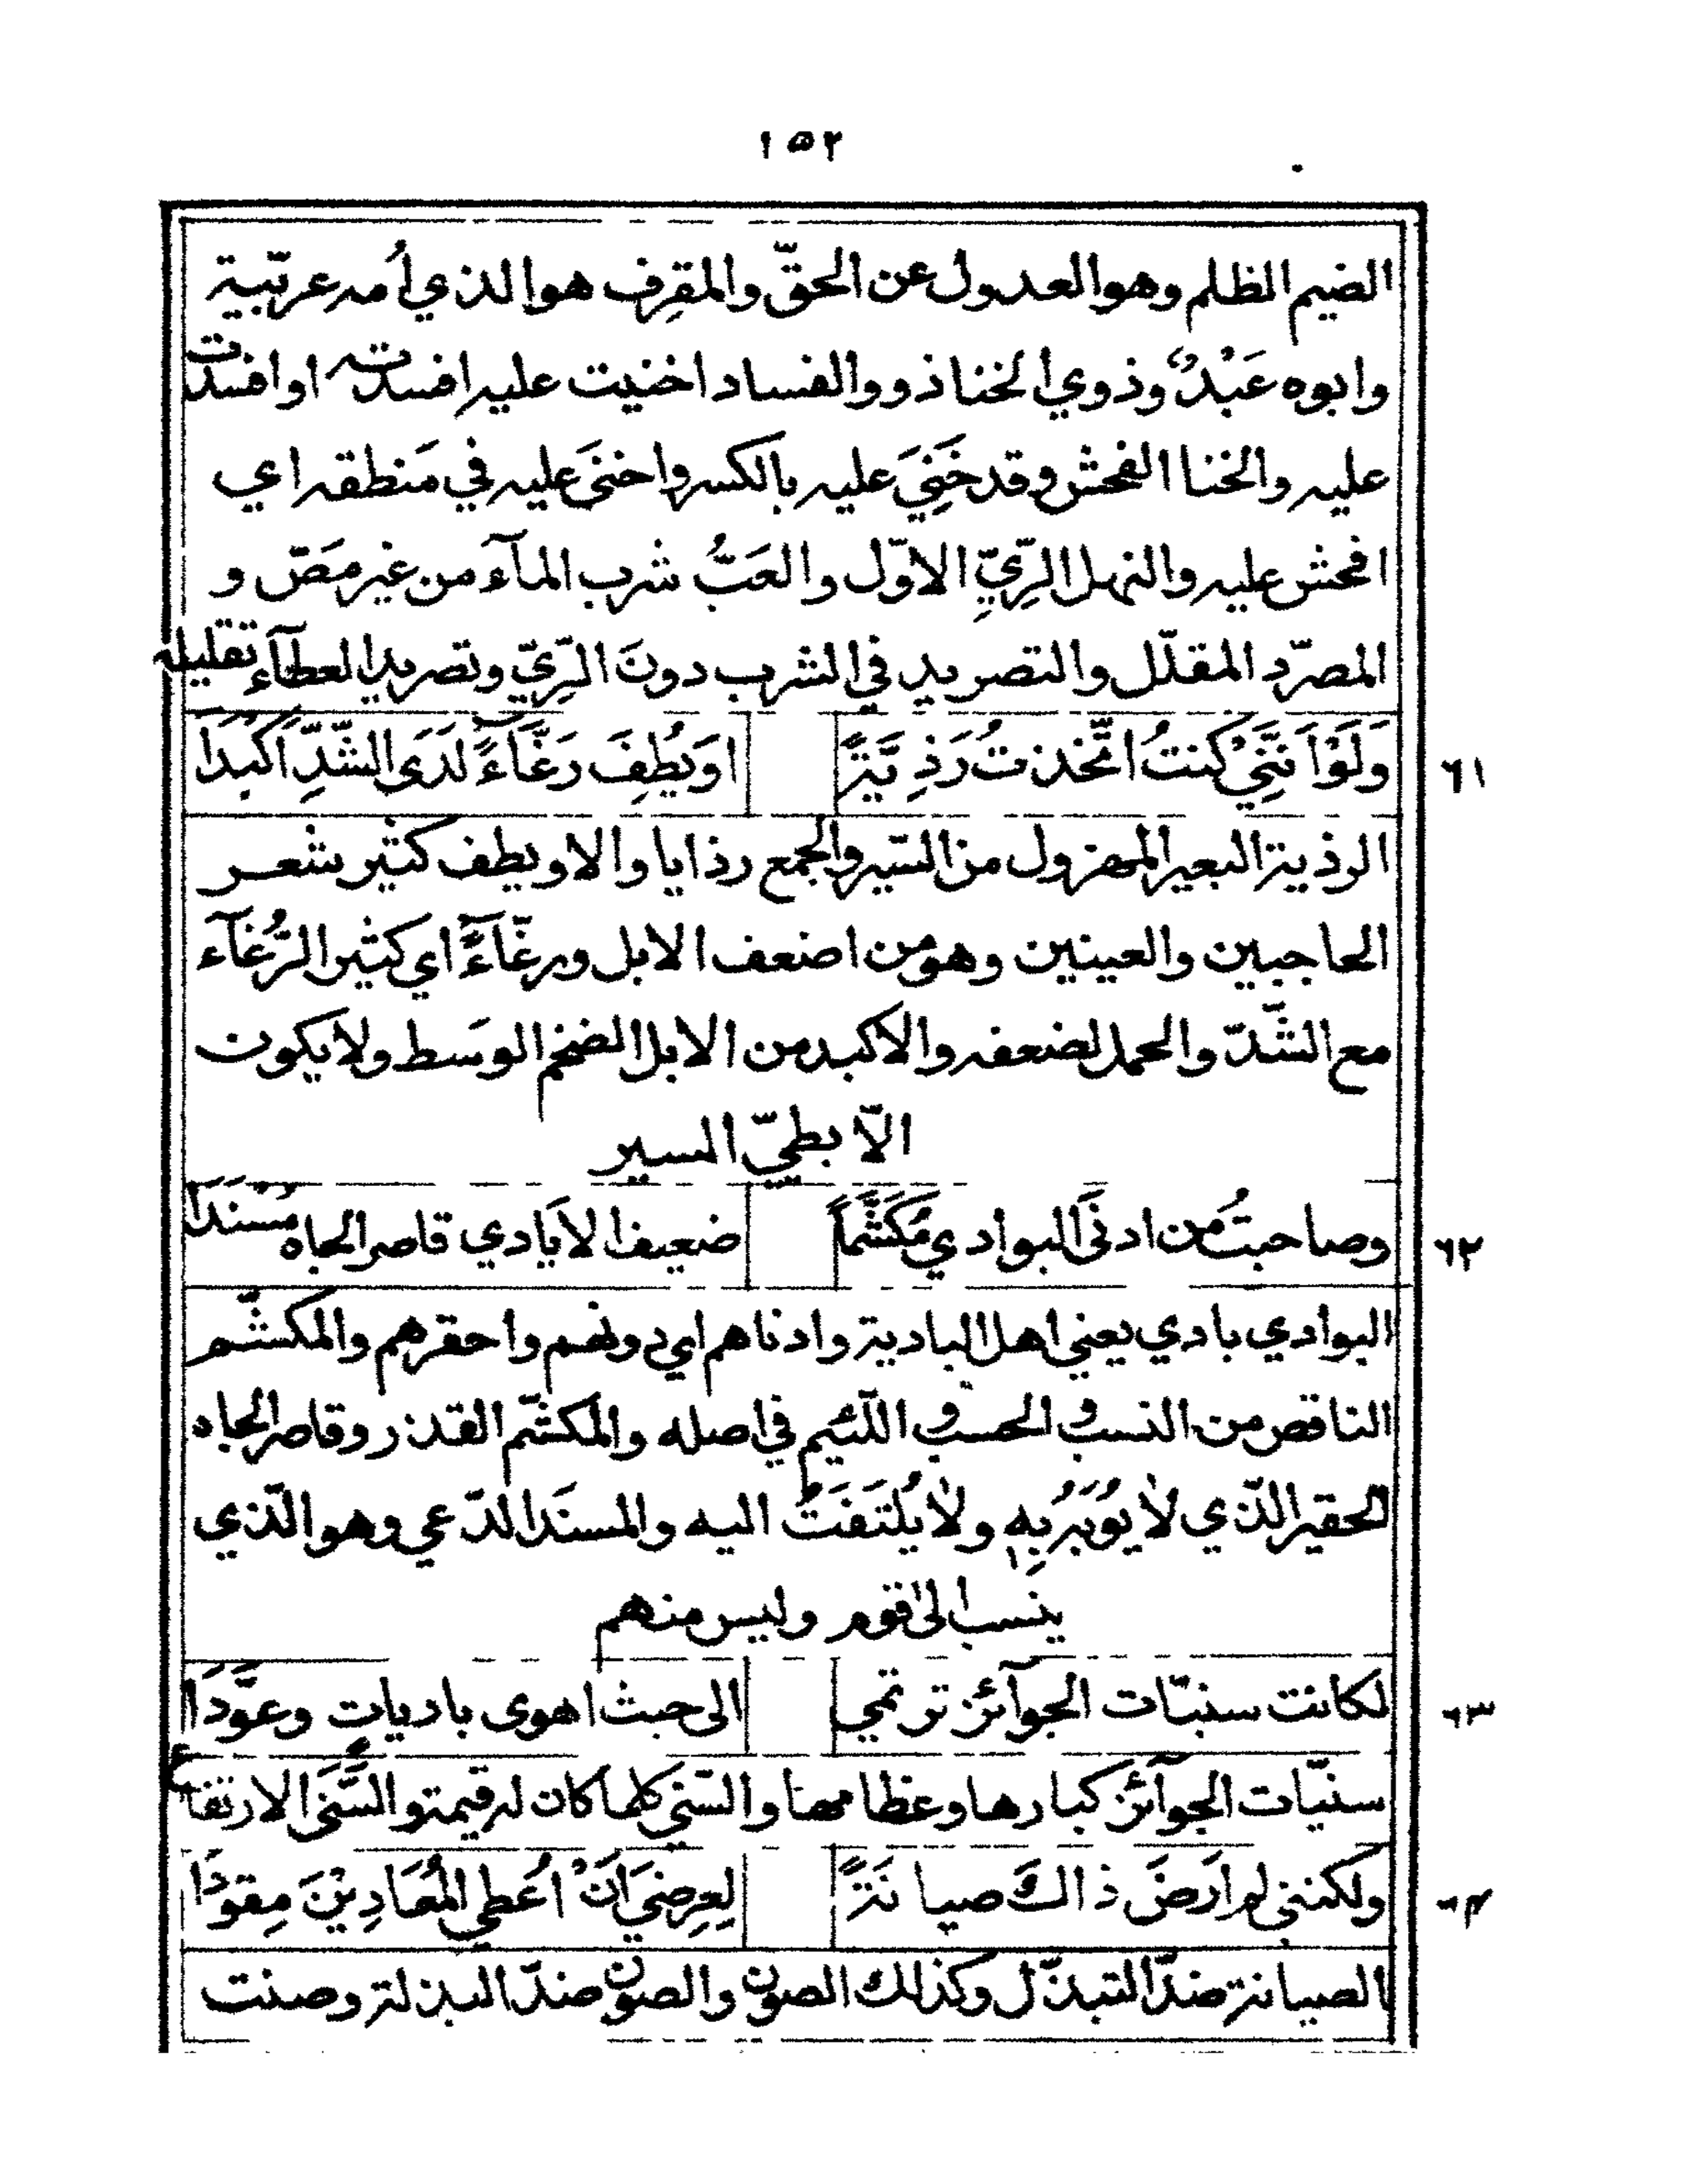 ١٥٢
الضيم الظلم وهو العدول عن الحقّ والمقرِف هو الذي أُمه عربّية
وابوه عَبْدٌ وذوي الخنا ذوو الفساد اخنيت عليهِ افسدته او افسدت
عليه والخنا الفحش وقد خَنِيَ عليه بالكسر واخنَى عليه في مَنطقه اي
افحش عليه والنهل الرِّيِّ الاوّل والعَبُّ شرب المآء من غير مَصّ و
المصرّد المقلّل والتصريد في الشرب دونَ الرِّيّ وتصريد العطآء تقليله
٦١ وَلَوْ اَنَّنِيْ كنتُ اتّخذتُ رَذِيَّةً اوَيُطِفَ رَغّآءً لَدَى الشّدِّ اَكْبَدَا
الرذية البعير المهزول من السّير والجمع رذايا والاويطف كثير شعر
الحاجبين والعينين وهو من اضعف الابل ورغّآءً اي كثير الرُّغآء
مع الشّدّ والحمل لضعفه والاكبد من الابل الضخم الوسَط ولا يكون
الاّ بطيّ السير
٦٢ وصاحبتُ من ادنَى البوادي مُكَشَّماً ضعيف الاَيادي قاصر الجاه مُسْنَدَا
البوادي بادي يعني اهل البادية وادناهم اي دونهم واحقرهم والمكشّم
الناقص من النسب و الحسب و اللّئيم في اصله والمكشّم القذر وقاصر الجاه
الحقير الّذي لا يُوبَهُ بِهِ ولا يُلتَفَتُ اليه والمسنَد الدّعي وهو الّذي
ينسب الى قوم وليس منهم
٦٣ لكانت سنيّات الجوآئز ترتمي الى حيث اهوى باديات وعوّدَا
سنيّات الجوآئز كبارها وعظامها والسّني كلما كان له قيمة والسَّنَى الارتفاع
٦٤ ولكنني لم اَرضَ ذالكَ صيانَةً لِعِرضيَ اَنْ اُعطي المُعَادِيْنَ مِقوَدَا
الصيانة ضدّ التبذّل وكذلك الصون والصوان ضدّ البذلة وصنت